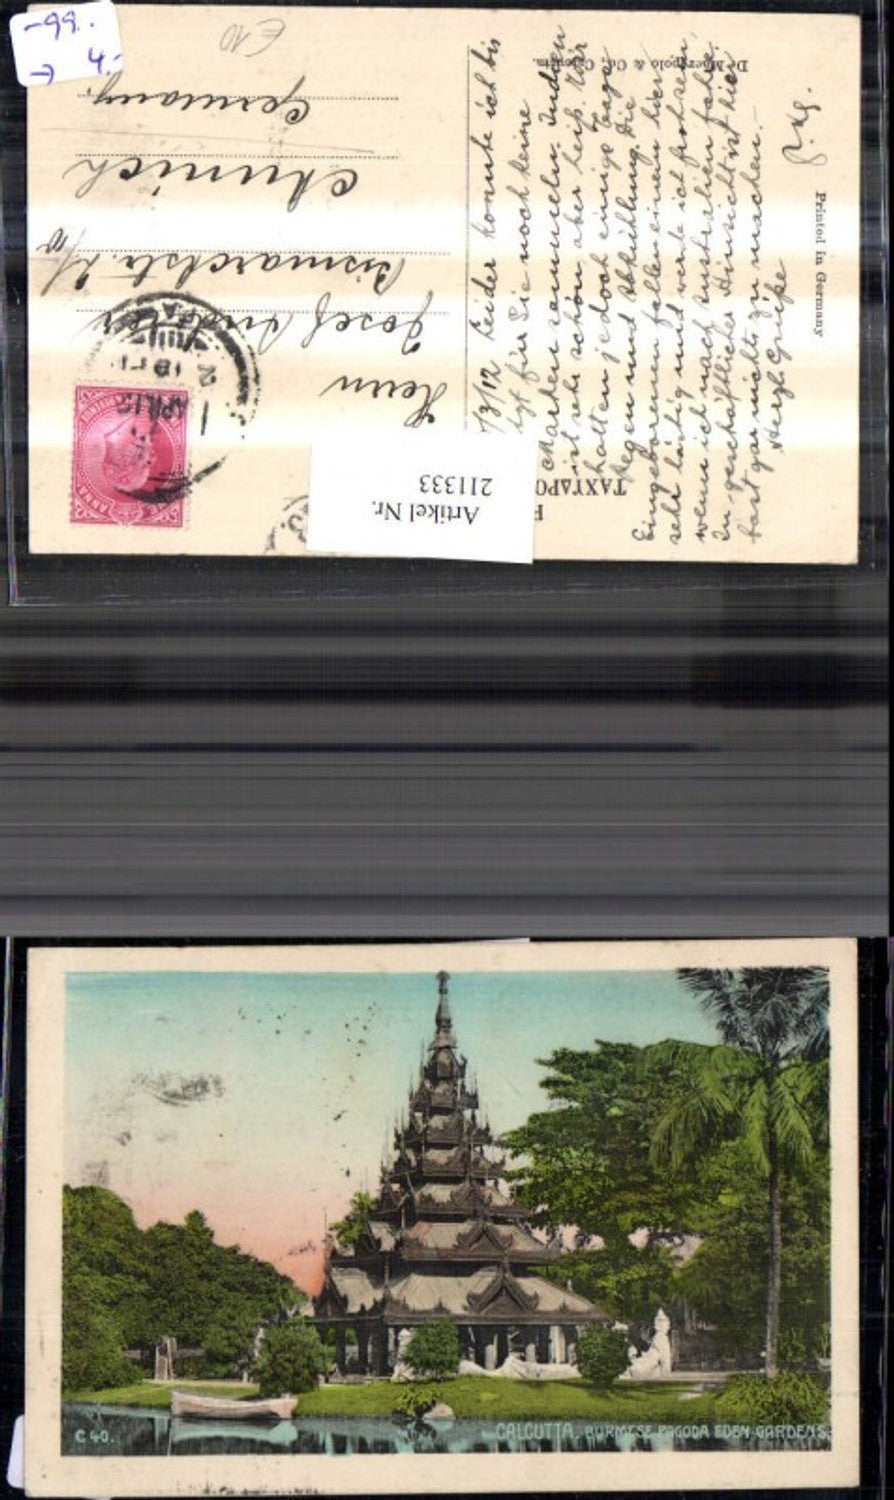 -99.-
→ 4.-
€10
Germany.
Munich
Bismarckstr.
Josef
Herrn
ANNA
Artikel Nr.
211333
ΤΑΧΥΔΡΟ
D. & Co.,
Printed in Germany
/3/12 Leider konnte ich bis
für Sie noch keine
Marken sammeln. Indien
ist sehr schön aber heiß. Wir
hatten jedoch einige Tage
Regen und Abkühlung. Die
Eingeborenen fallen einem hier
sehr lästig und werde ich froh sein,
wenn ich nach Australien fahre.
In geschäftlicher Hinsicht ist hier
fast gar nichts zu machen.-
Herzl. Grüße
C 40.
CALCUTTA, BURMESE PAGODA EDEN GARDENS.